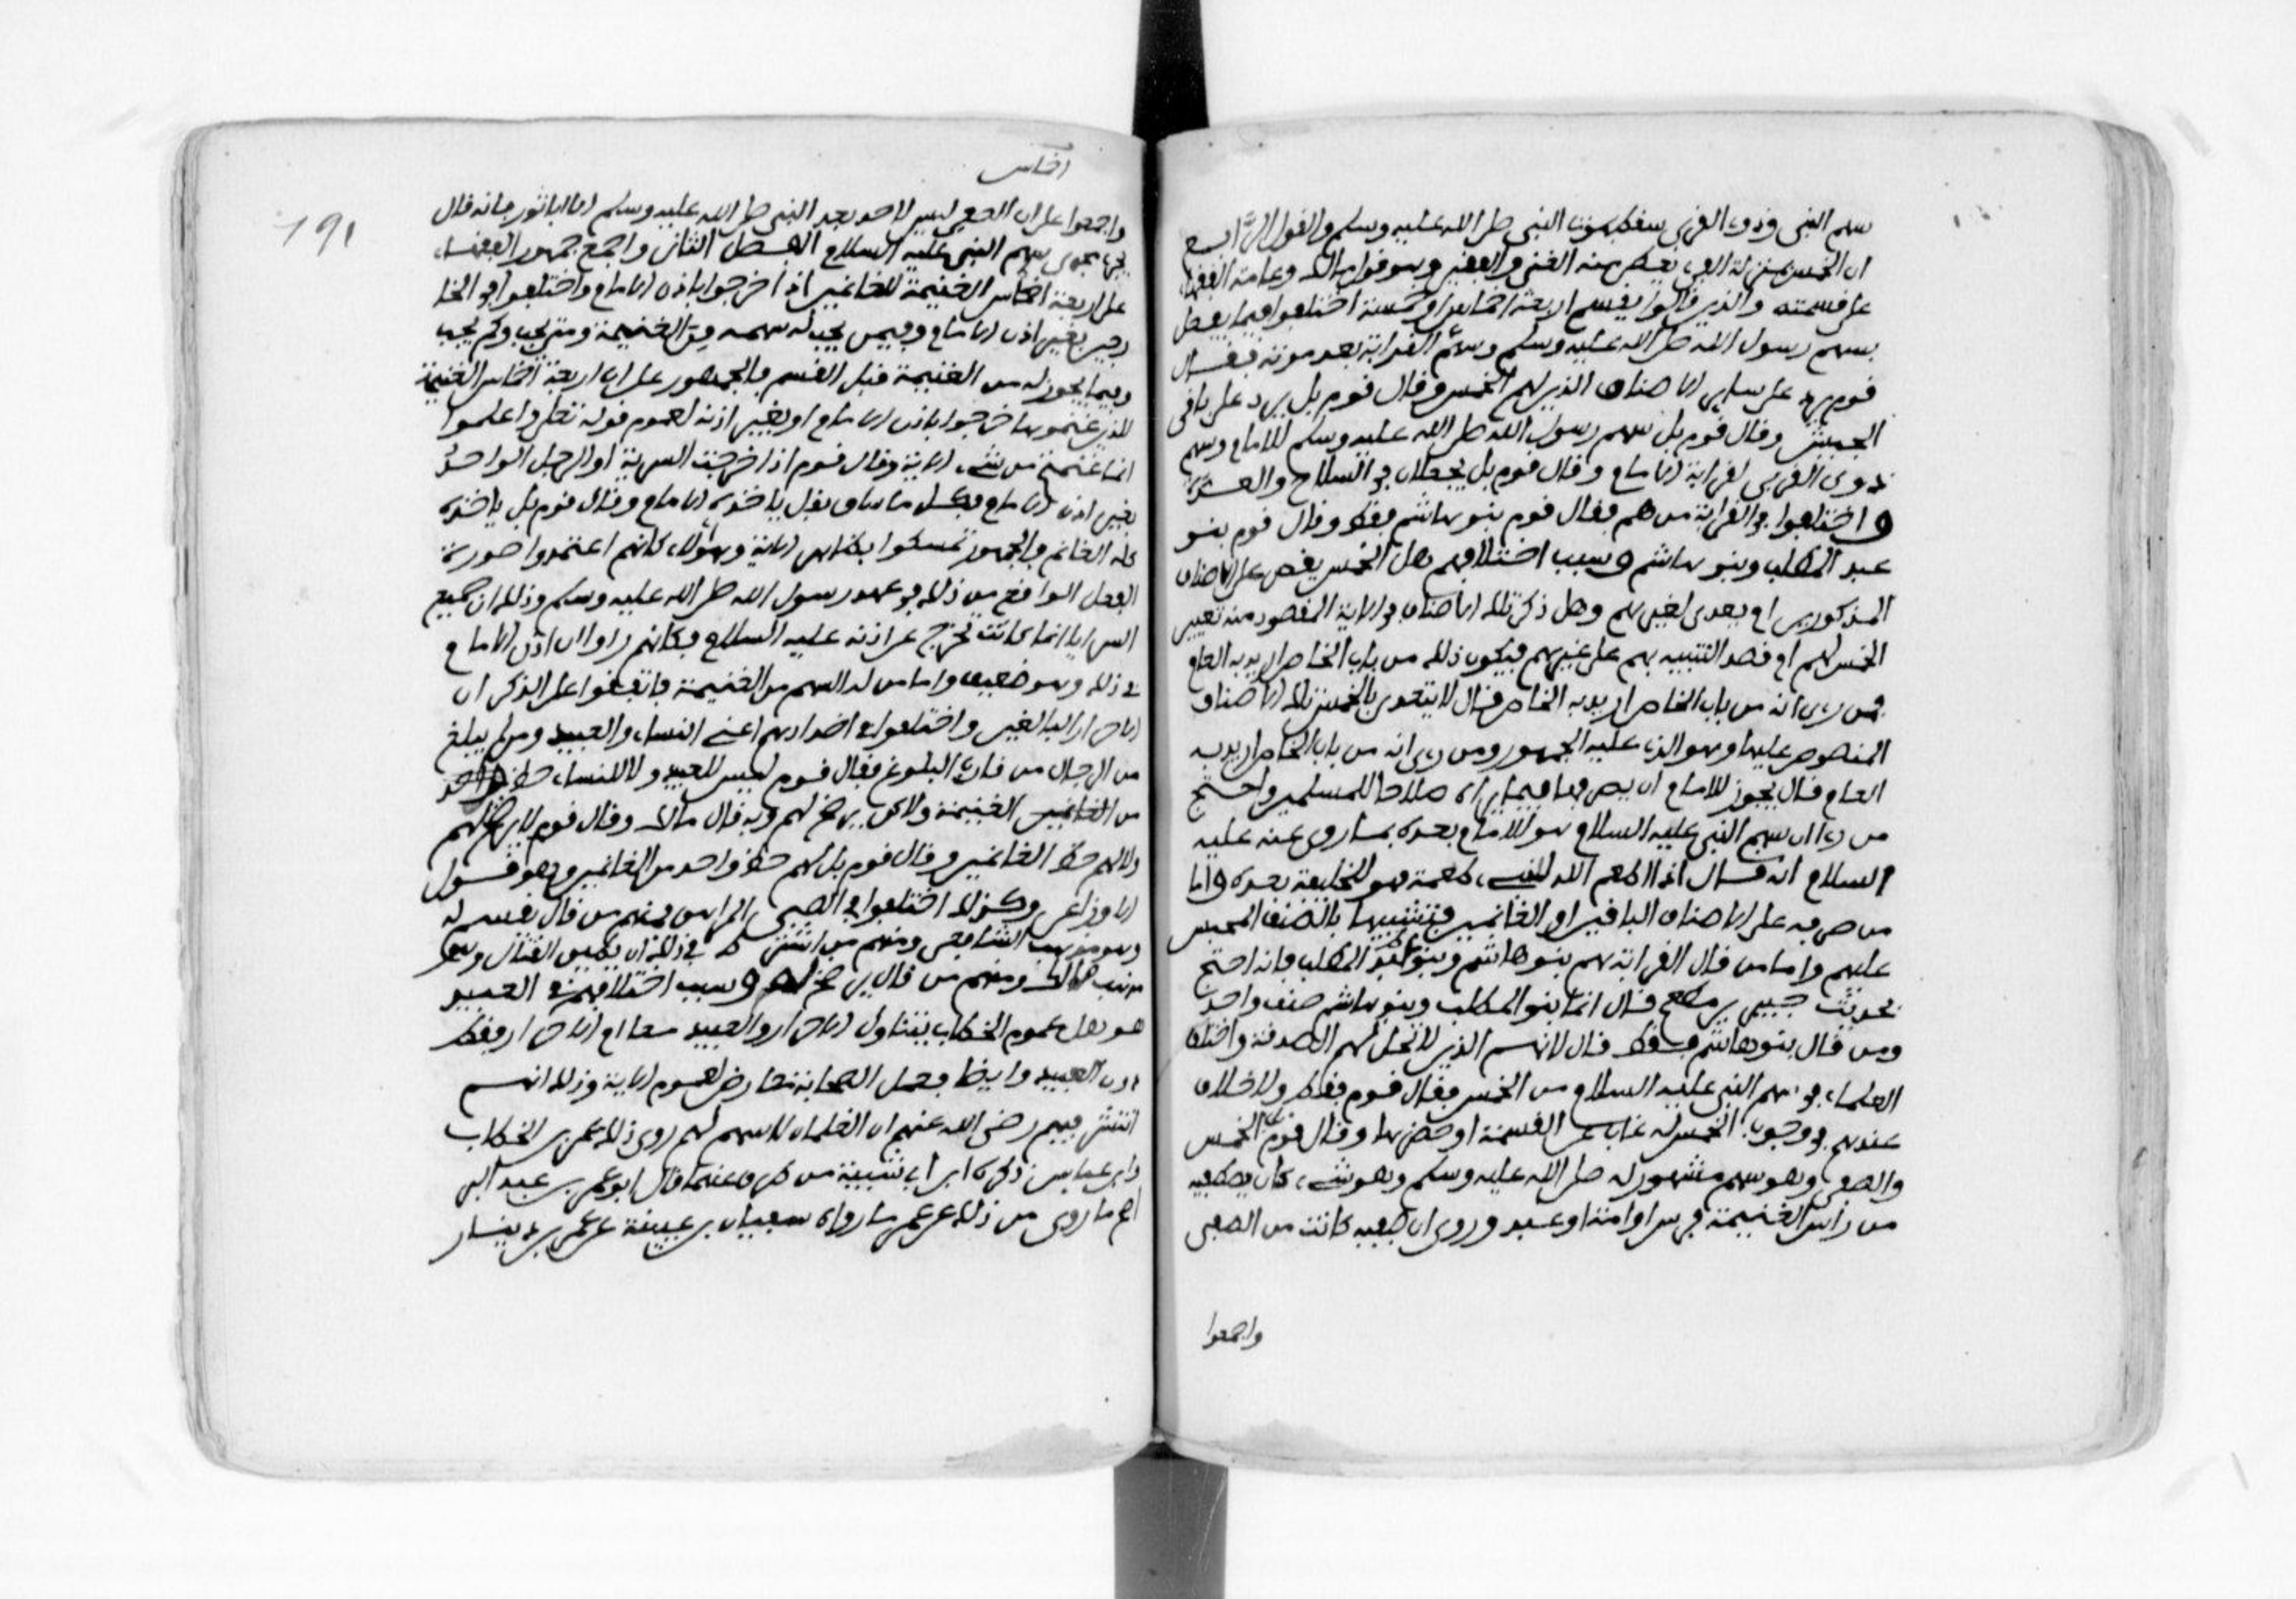 سهم النبي وذوي القربى سقط بموت النبي صلى الله عليه وسلم والقول الرابع
ان الخمس بمنزلة الفيء يعطى منه الغني والفقير وهو قول مالك وعامة الفقهاء
على قسمته والذين قالوا يقسم اربعة اخماس او خمسة اختلفوا فيما يفعل
بسهم رسول الله صلى الله عليه وسلم وسهم القرابة بعد موته فقال
قوم يرد على سائر الاصناف الذين لهم الخمس وقال قوم بل يرد على باقي
الجيش وقال قوم بل سهم رسول الله صلى الله عليه وسلم للامام وسهم
ذوي القربى لقرابة الامام وقال قوم بل يجعلان في السلاح والعدة
واختلفوا في القرابة من هم فقال قوم بنو هاشم فقط وقال قوم بنو
عبد المطلب وبنو هاشم وسبب اختلافهم هل الخمس يقصر على الاصناف
المذكورين ام يعدى لغيرهم وهل ذكر تلك الاصناف في الاية المقصود منه تعيين
الخمس لهم ام قصد التنبيه بهم على غيرهم فيكون ذلك من باب الخاص اريد به العام
فمن رءى انه من باب الخاص اريد به الخاص قال لا يتعدى بالخمس تلك الاصناف
المنصوص عليها وهو الذي عليه الجمهور ومن رءى انه من باب الخاص اريد به
العام قال يجوز للامام ان يصرفها فيما يراه صلاحا للمسلمين واحتج
من رءا ان سهم النبي عليه السلام هو للامام بعده بما روى عنه عليه
السلام انه قال اذا اطعم الله لنبيء طعمة فهو للخليفة بعده واما
من صرفه على الاصناف الباقين او الغانمين فتشبيها بالصنف المحبس
عليهم واما من قال القرابة هم بنو هاشم وبنو عبد المطلب فانه احتج
بحديث جبير بن مطعم قال انما بنو المطلب وبنو هاشم صنف واحد
ومن قال بنو هاشم فقط قال لانهم الذين لا تحل لهم الصدقة واختلف
العلماء في سهم النبي عليه السلام من الخمس فقال قوم فقط ولا خلاف
عندهم في وجوب الخمس له غاب عن القسمة او حضرها وقال قوم بل الخمس
والصفي وهو سهم مشهور له صلى الله عليه وسلم وهو شيء كان يصطفيه
من رأس الغنيمة فرس او امة او عبد وروي ان صفية كانت من الصفي
واجمعوا
اخماس
191
واجمعوا على ان الصفي ليس لاحد بعد النبي صلى الله عليه وسلم الا ابا ثور فانه قال
يجري مجرى سهم النبي عليه السلام الفصل الثاني واجمع جمهور الفقهاء
على اربعة اخماس الغنيمة للغانمين اذا خرجوا باذن الامام واختلفوا في الخا
رجين بغير اذن الامام وفيمن يجب له سهمه من الغنيمة ومتى يجب وكم يجب
وفيما يجوز له من الغنيمة قبل القسم فالجمهور على ان اربعة اخماس الغنيمة
للذين غنموها خرجوا باذن الامام او بغير اذنه لعموم قوله تعلى واعلموا
انما غنمتم من شيء الاية وقال قوم اذا خرجت السرية او الرجل الواحد
بغير اذن الامام فكل ما ساق نفل ياخذه الامام وقال قوم بل ياخذه
كله الغانم فالجمهور تمسكوا بظاهر الاية وهؤلاء كانهم اعتمدوا صورة
الفعل الواقع من ذلك في عهد رسول الله صلى الله عليه وسلم وذلك ان جميع
السرايا انما كانت تخرج عن اذنه عليه السلام فكانهم راوا ان اذن الامام
في ذلك وهو ضعيف واما من له السهم من الغنيمة فاتفقوا على الذكران
الاحرار البالغين واختلفوا في اضدادهم اعني النساء والعبيد ومن لم يبلغ
من الرجال من قارب البلوغ فقال قوم ليس للعبيد ولا للنساء حظ واحد
من الغانمين الغنيمة ولاكن يرضخ لهم وبه قال مالك وقال قوم لا يرضخ لهم
ولا لهم حظ الغانمين وقال قوم بل لهم حظ واحد من الغانمين وهو قول
الاوزاعي وكذلك اختلفوا في الصبي المراهق فمنهم من قال يقسم له
وهو مذهب الشافعي ومنهم من اشترط في ذلك ان يطيق القتال وهو
مذهب مالك ومنهم من قال يرضخ له وسبب اختلافهم في العبيد
هو هل عموم الخطاب يتناول الاحرار والعبيد معا ام الاحرار فقط
دون العبيد وايضا فعمل الصحابة معارض لعموم الاية وذلك انهم
انتشر فيهم رضي الله عنهم ان الغلمان لا سهم لهم روي ذلك عن عمر بن الخطاب
وابن عباس ذكره ابن ابي شيبة من طرق عنهما قال ابو عمر بن عبد البر
اصح ما روي من ذلك عن عمر ما رواه سفيان بن عيينة عن عمرو بن دينار